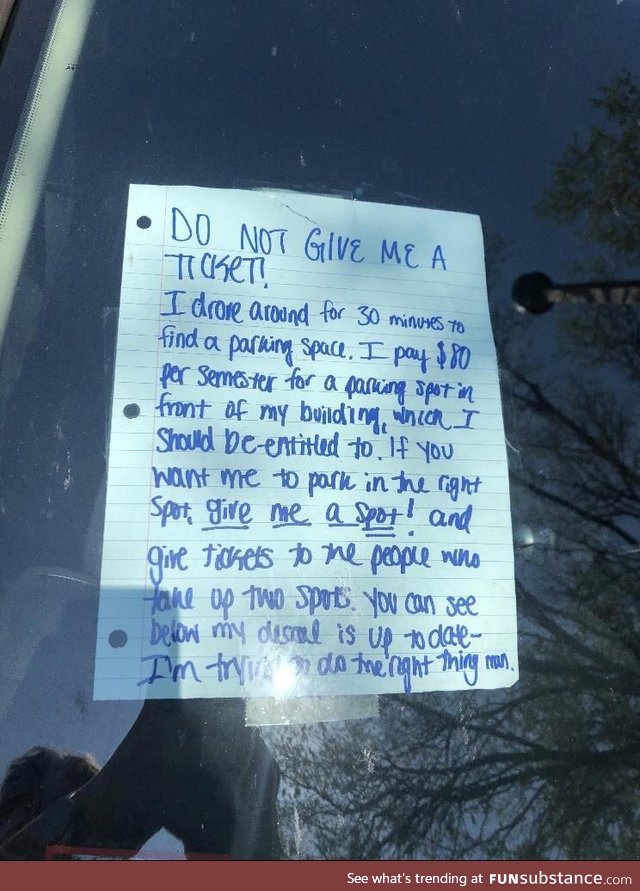 DO NOT GIVE ME A
TICKET!
I drove around for 30 minutes to
find a parking space. I pay $80
per semester for a parking spot in
front of my building, which I
should be entitled to. If you
want me to park in the right
spot, give me a spot! and
give tickets to the people who
take up two spots. You can see
below my descal is up to date-
I'm trying to do the right thing man.
See what's trending at FUNsubstance.com